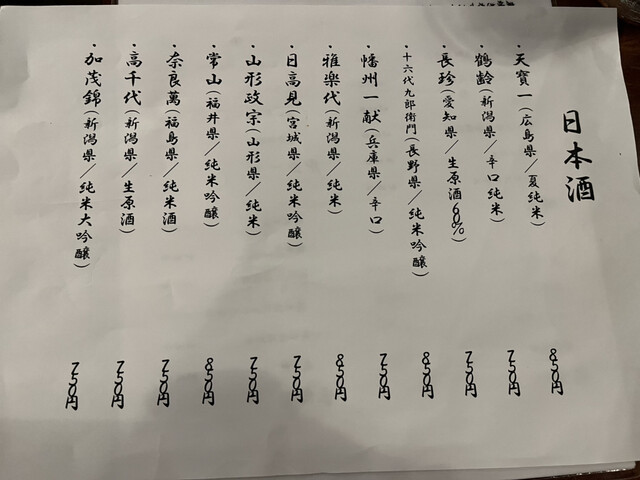 日本酒
・天寶一(広島県/夏純米) 850円
・鶴齢(新潟県/辛口純米) 750円
・長珍(愛知県/生原酒60%) 750円
・十六代九郎衛門(長野県/純米吟醸) 850円
・幡州一献(兵庫県/辛口) 750円
・雅楽代(新潟県/純米) 850円
・日高見(宮城県/純米吟醸) 750円
・山形政宗(山形県/純米) 750円
・常山(福井県/純米吟醸) 850円
・奈良萬(福島県/純米酒) 750円
・高千代(新潟県/生原酒) 750円
・加茂錦(新潟県/純米大吟醸) 750円